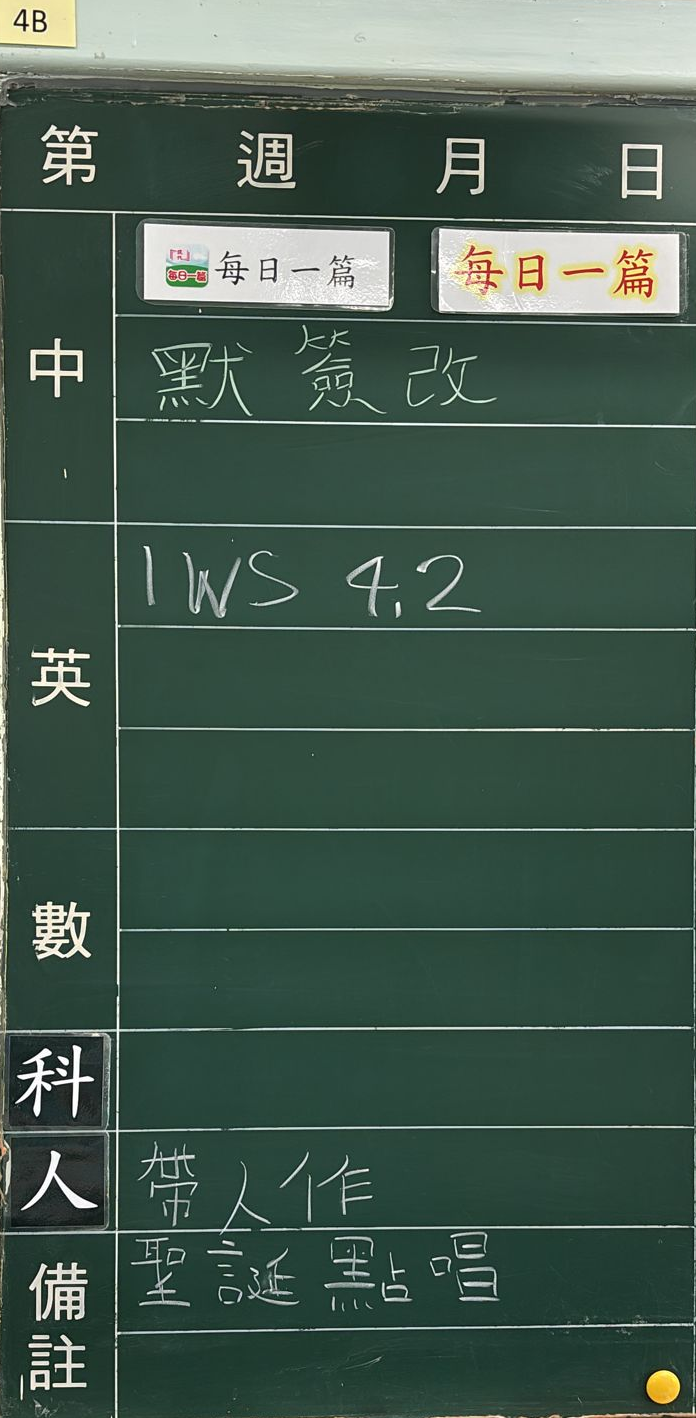 4B
第 週 月 日
每日一篇 每日一篇 每日一篇
中 默 簽 改
英 1 WS 4.2
數
科
人 帶人作
備註 聖誕點唱